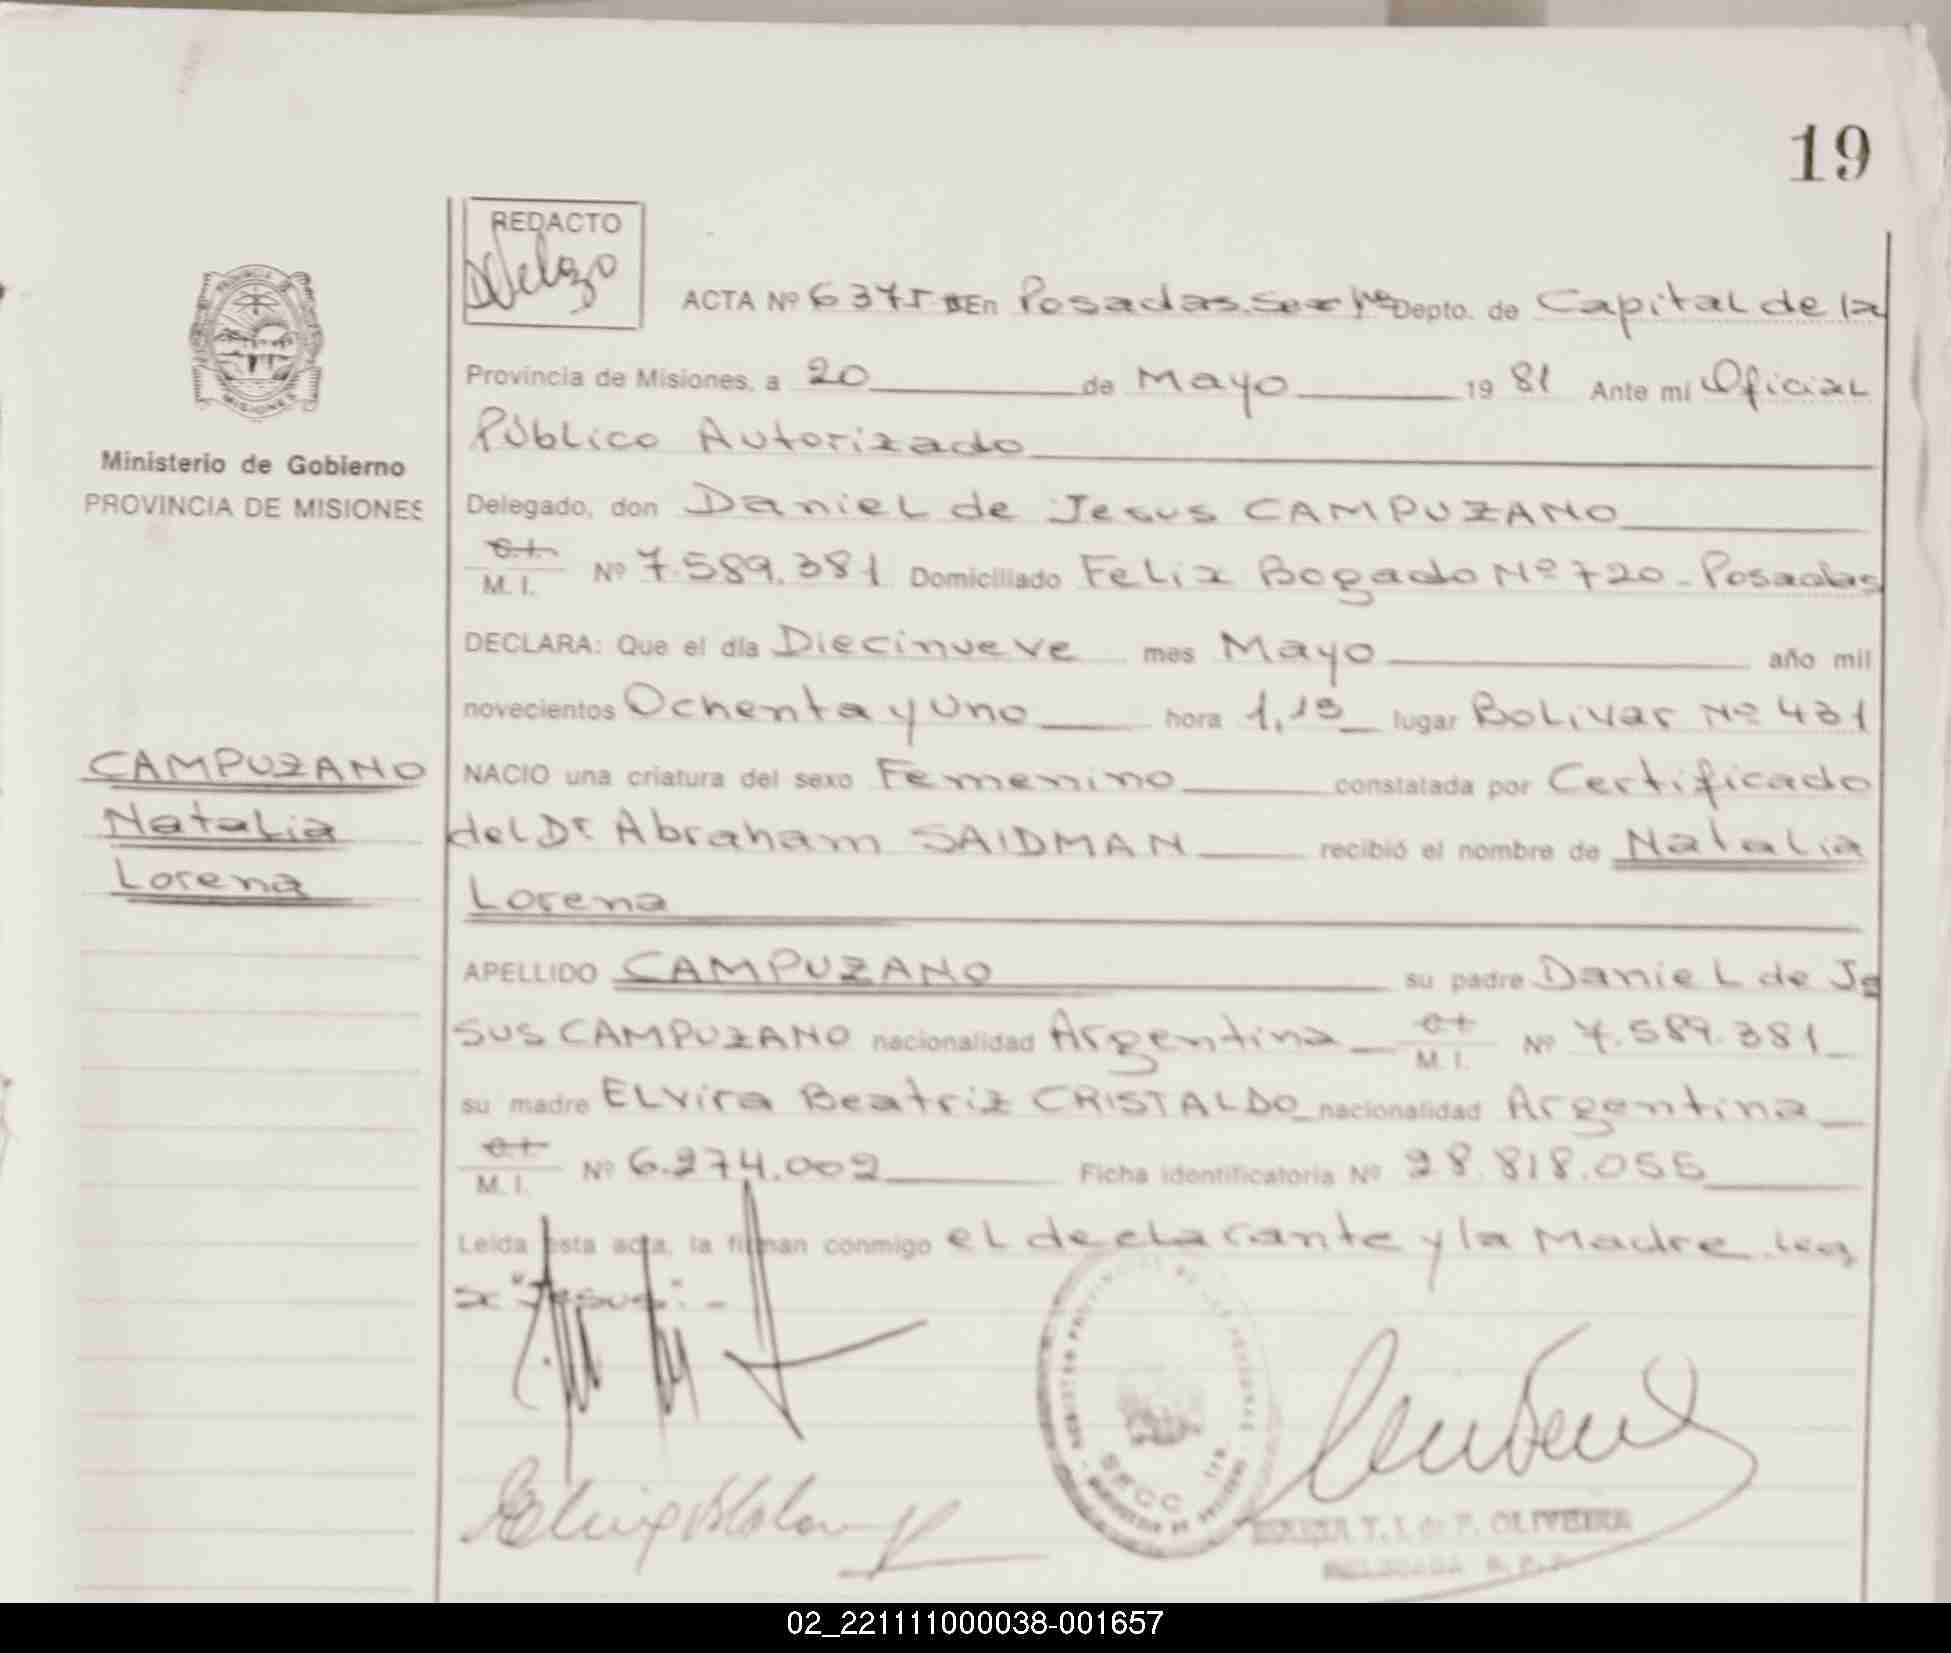 19
REDACTO
ACTA Nº 6375 En Posadas. Depto. de Capital de la
Provincia de Misiones, a 20 de Mayo 19 81 Ante mí Oficial
Público Autorizado
Ministerio de Gobierno
PROVINCIA DE MISIONES
Delegado, don Daniel de Jesus CAMPUZANO
M. I. Nº 7.589.381 Domiciliado Felix Bogado Nº 720 - Posadas
DECLARA: Que el día Diecinueve mes Mayo año mil
novecientos Ochenta y Uno hora lugar Bolivar Nº 431
CAMPUZANO
Natalia
Lorena
NACIO una criatura del sexo Femenino constatada por Certificado
del Dr Abraham SAIDMAN recibió el nombre de Natalia
Lorena
APELLIDO CAMPUZANO su padre Daniel de Je
sus CAMPUZANO nacionalidad Argentina M. I. Nº 7.589.381
su madre ELvira Beatriz CRISTALDO nacionalidad Argentina
M. I. Nº 6.274.002 Ficha identificatoria Nº 28.818.055
Leída esta acta, la firman conmigo el declarante y la Madre.
"Jesus":-
SECC
T. I. de P. OLIVEIRA
02_221111000038-001657